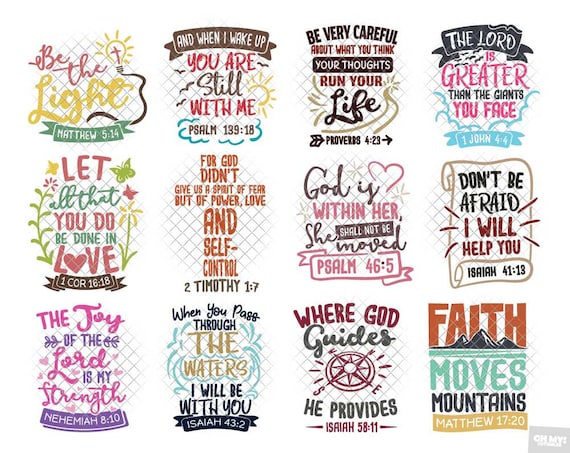 Be the
Light
MATTHEW 5:14
AND WHEN I WAKE UP
YOU ARE
Still
WITH ME
PSALM 139:18
BE VERY CAREFUL
ABOUT WHAT YOU THINK
YOUR THOUGHTS
RUN YOUR
Life
PROVERBS 4:23
THE LORD
IS
GREATER
THAN THE GIANTS
YOU FACE
1 JOHN 4:4
LET
all that
YOU DO
BE DONE IN
LOVE
1 COR 16:18
FOR GOD
DIDN'T
GIVE US A SPIRIT OF FEAR
BUT OF POWER, LOVE
AND
SELF-
CONTROL
2 TIMOTHY 1:7
God is
WITHIN HER,
She SHALL NOT BE
moved
PSALM 46:5
DON'T BE
AFRAID
I WILL
HELP YOU
ISAIAH 41:13
THE Joy
OF THE
Lord
IS MY
Strength
NEHEMIAH 8:10
When You Pass
THROUGH
THE
WATERS
I WILL BE
WITH YOU
ISAIAH 43:2
WHERE GOD
Guides
HE PROVIDES
ISAIAH 58:11
FAITH
MOVES
MOUNTAINS
MATTHEW 17:20
OH MY!